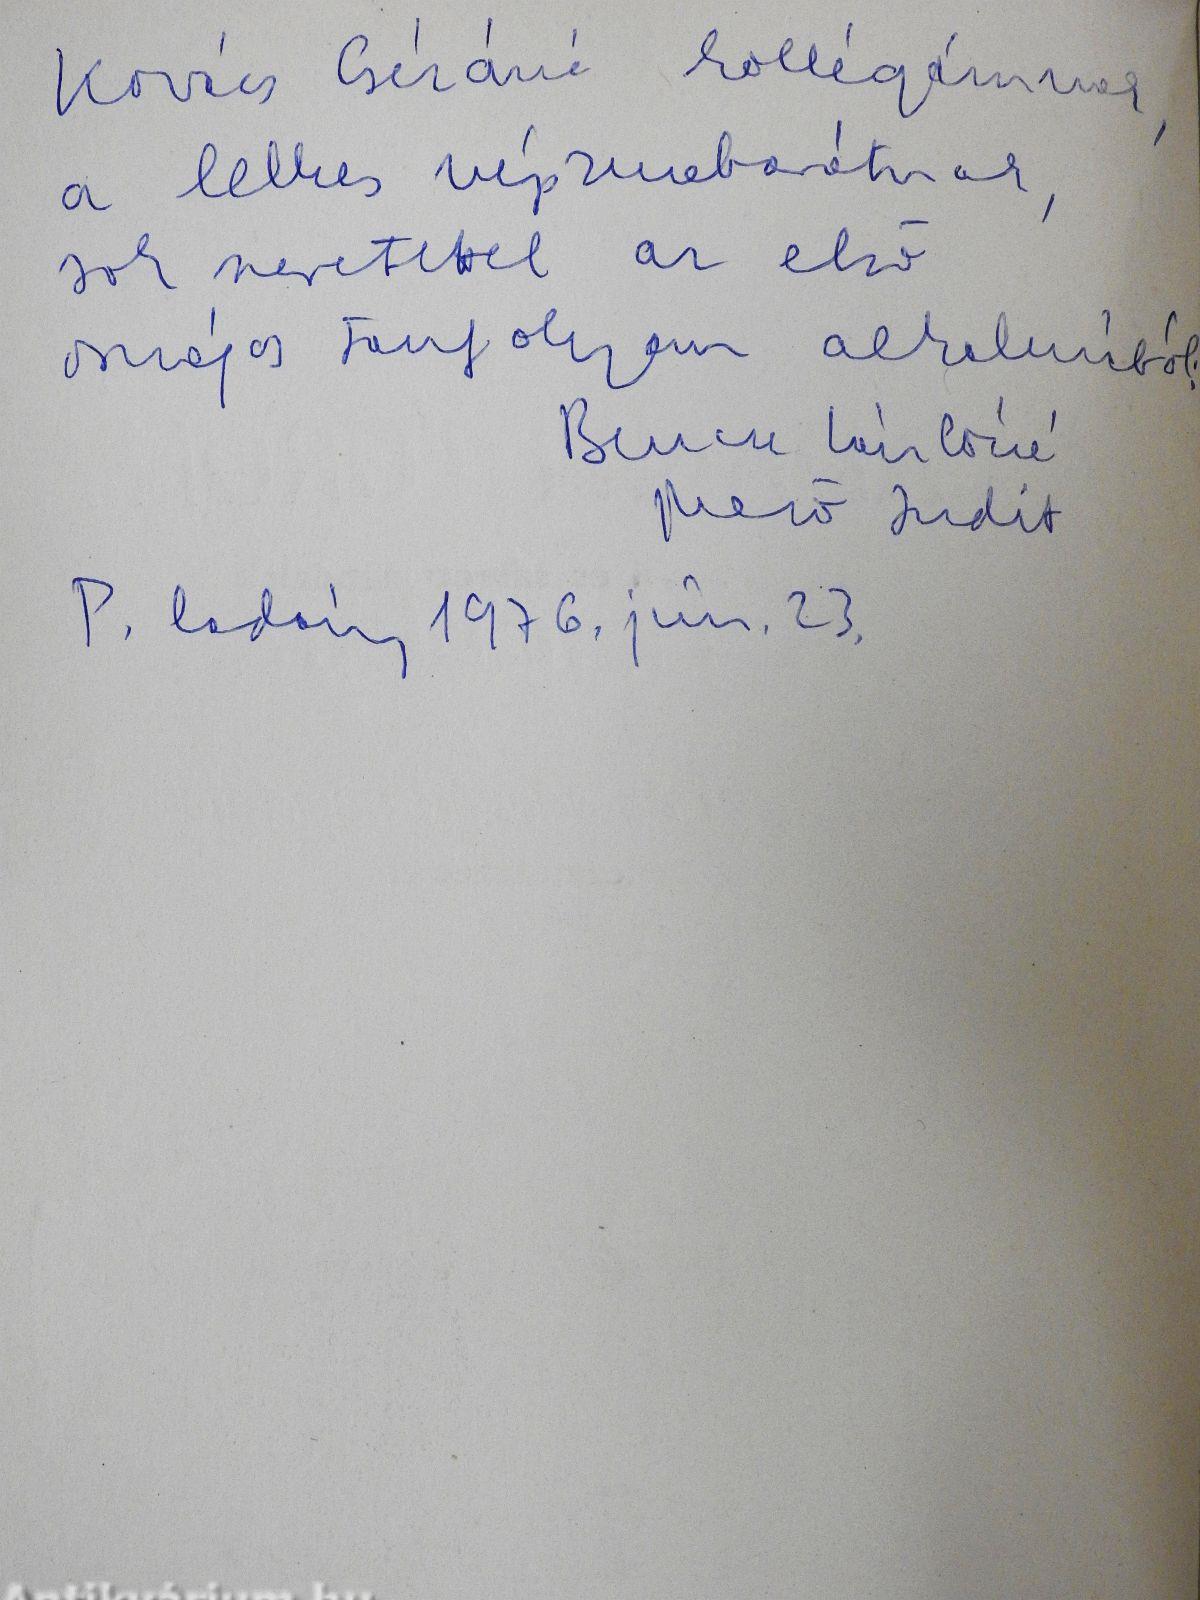 Kovács Gézáné kollégámnak,
a lelkes népzenebarátnak,
sok szeretettel az első
országos tanfolyam alkalmából:
Bencze Lászlóné
Mező Judit
P. ladány 1976. jún. 23.
Antikvárium.hu